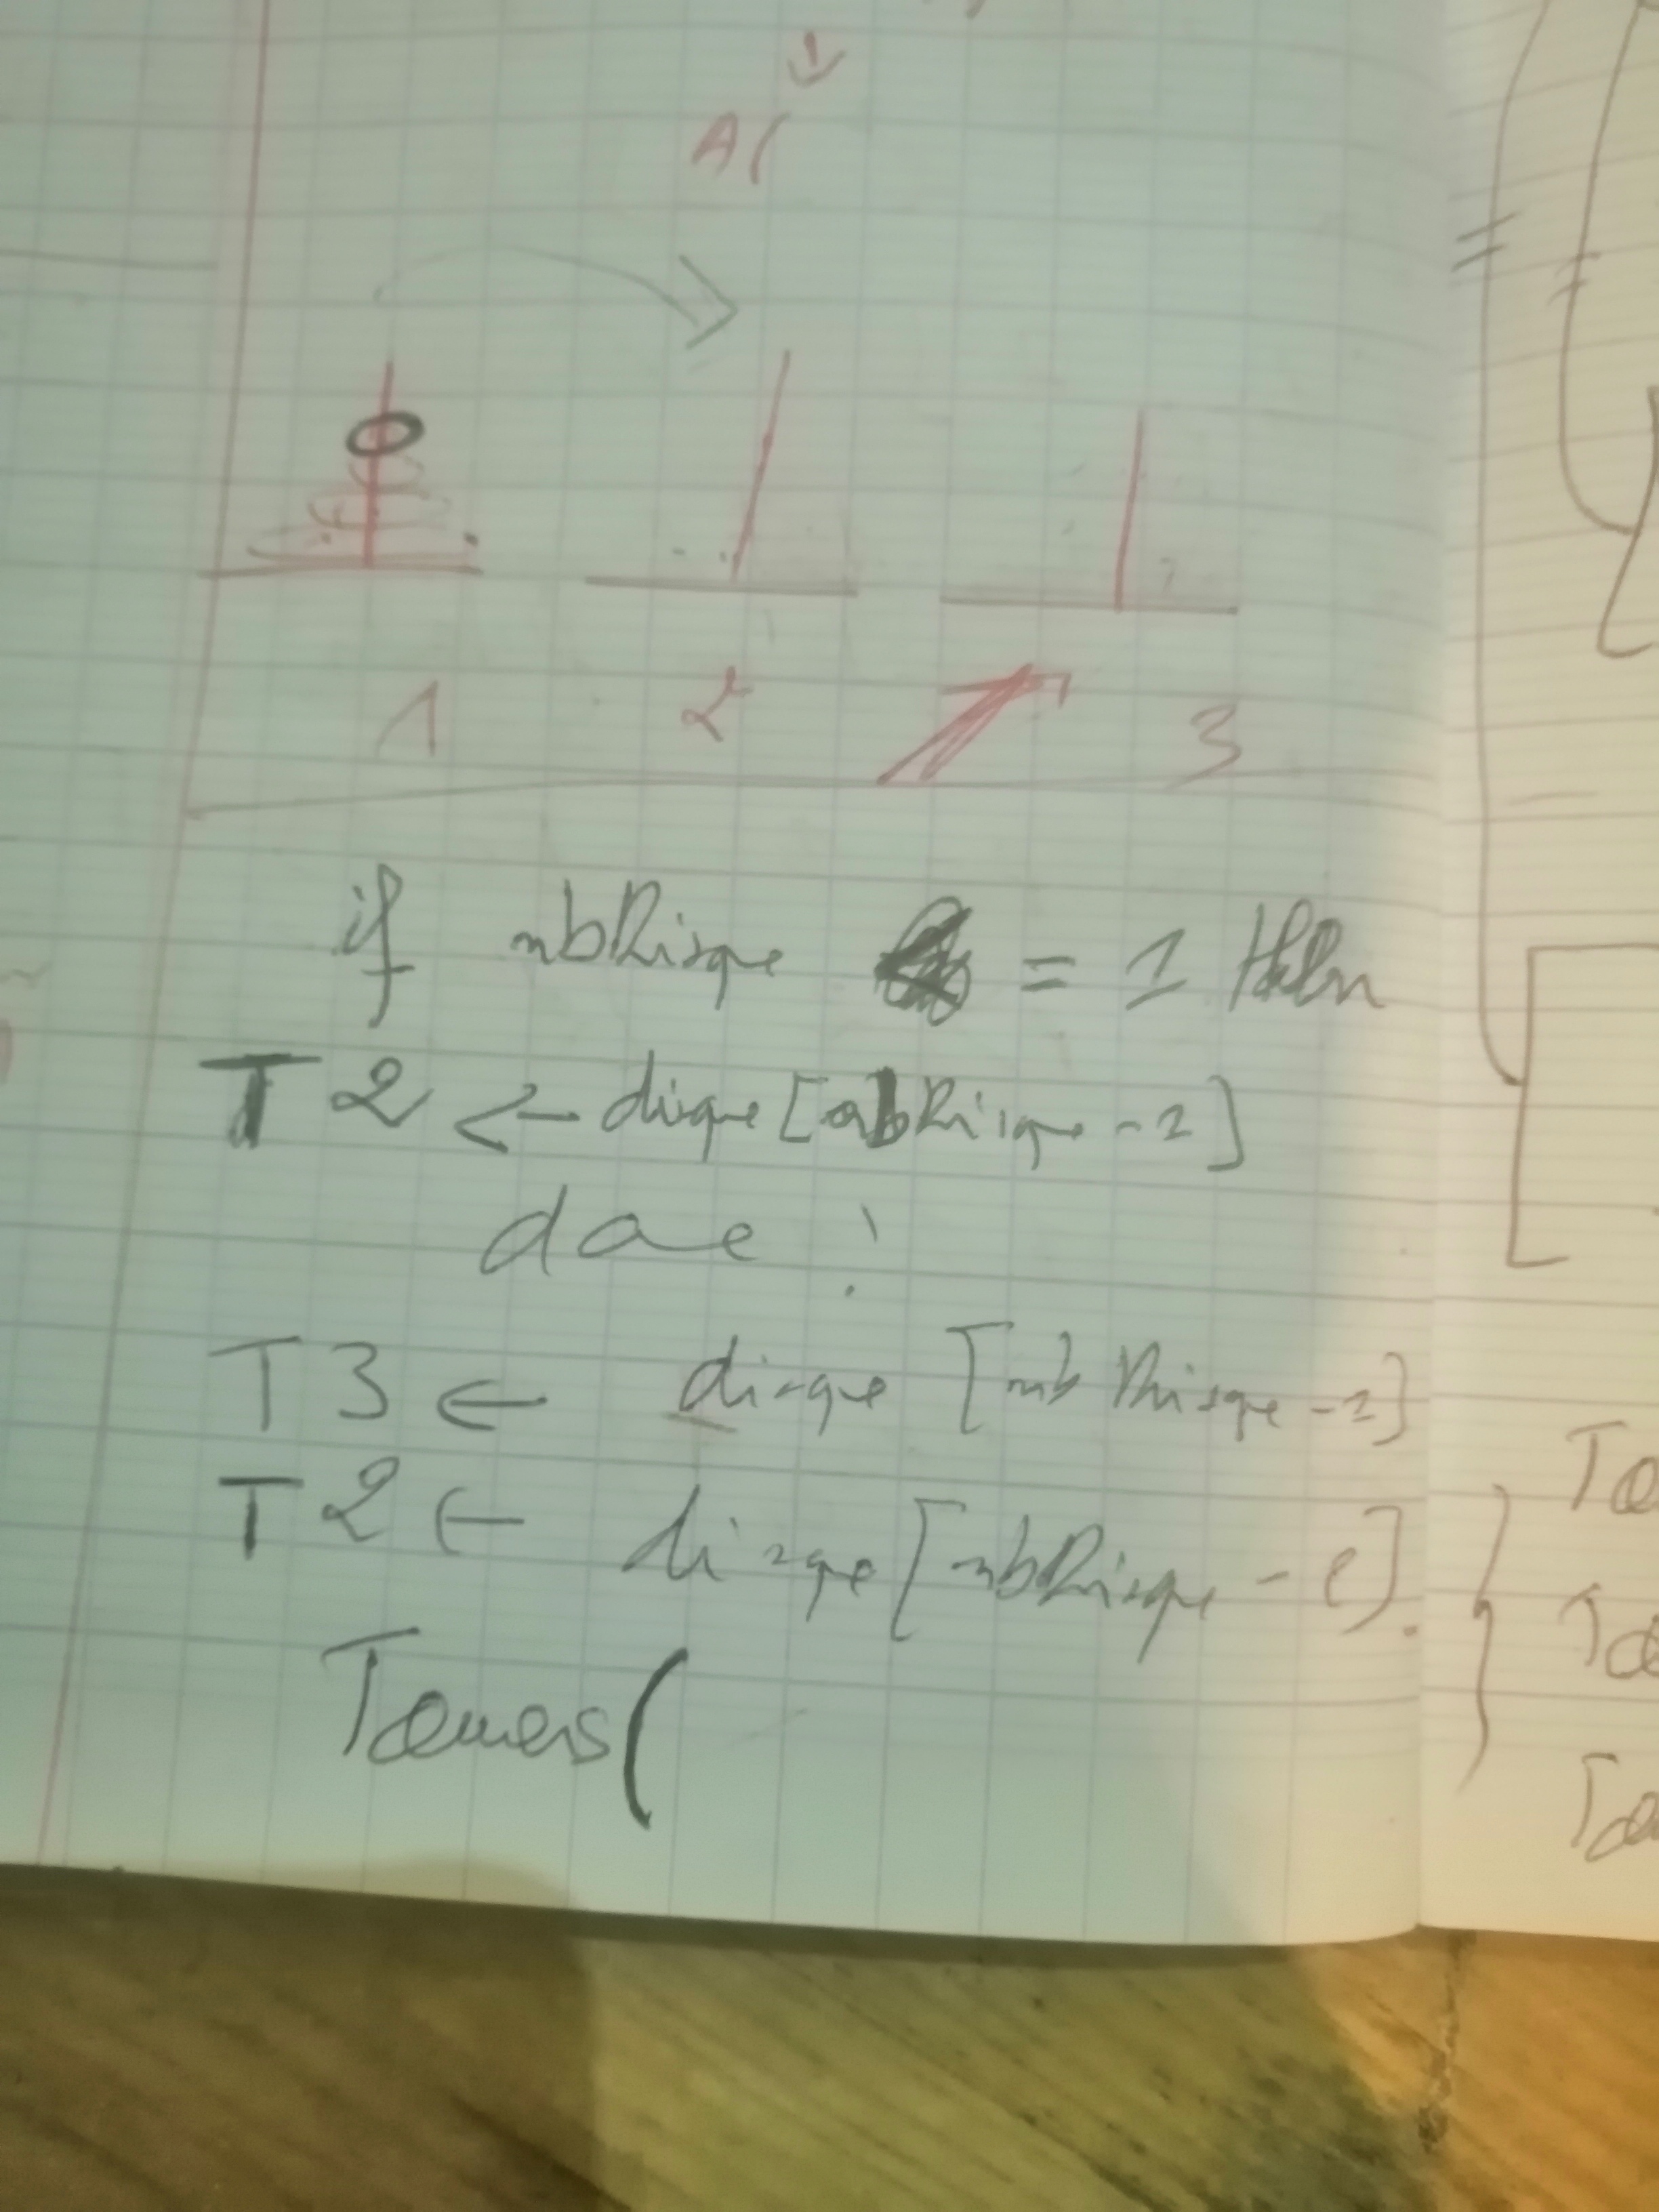 A(
1 2 3
if nbDisque = 1 then
T2 ← disque[nbDisque-1]
T3 ← disque [nbDisque-1]
T2 ← disque[nbDisque-
Towers(
To
To
To